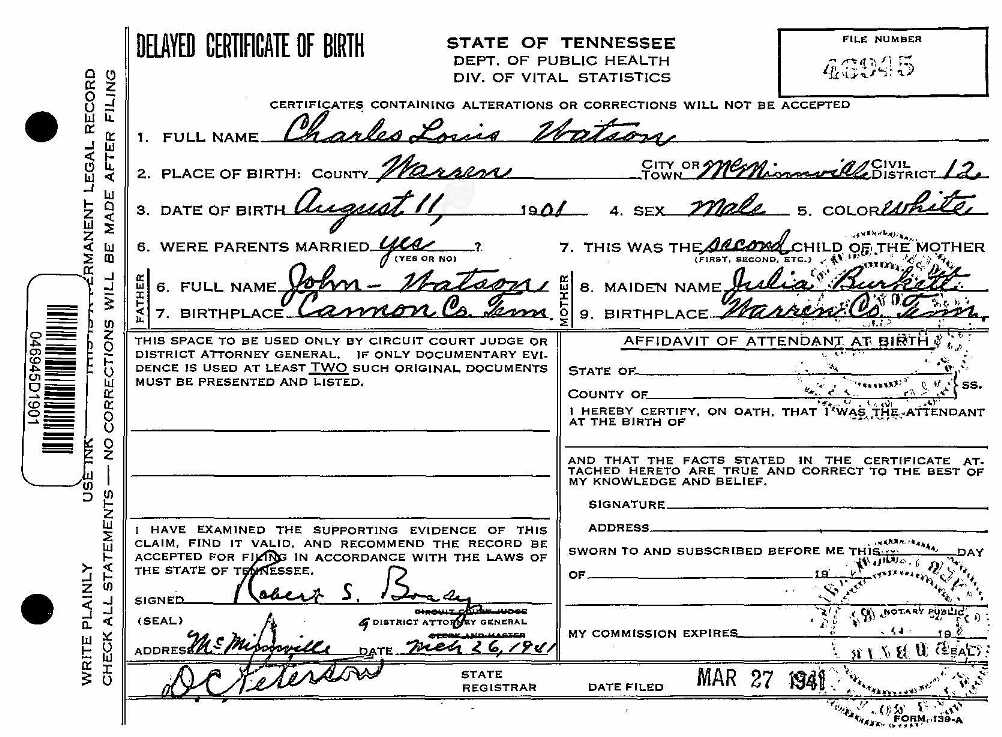 DELAYED CERTIFICATE OF BIRTH
STATE OF TENNESSEE
DEPT. OF PUBLIC HEALTH
DIV. OF VITAL STATISTICS
FILE NUMBER
46945
CERTIFICATES CONTAINING ALTERATIONS OR CORRECTIONS WILL NOT BE ACCEPTED
1. FULL NAME Charles Louis Watson
2. PLACE OF BIRTH: COUNTY Warren CITY OR TOWN McMinnville CIVIL DISTRICT 12
3. DATE OF BIRTH August 11, 1901 4. SEX Male 5. COLOR White
6. WERE PARENTS MARRIED yes ? (YES OR NO) 7. THIS WAS THE second CHILD OF THE MOTHER (FIRST, SECOND, ETC.)
FATHER
6. FULL NAME John - Watson
7. BIRTHPLACE Cannon Co. Tenn.
MOTHER
8. MAIDEN NAME Julia Burkett
9. BIRTHPLACE Warren Co. Tenn.
THIS SPACE TO BE USED ONLY BY CIRCUIT COURT JUDGE OR
DISTRICT ATTORNEY GENERAL. IF ONLY DOCUMENTARY EVI-
DENCE IS USED AT LEAST TWO SUCH ORIGINAL DOCUMENTS
MUST BE PRESENTED AND LISTED.
I HAVE EXAMINED THE SUPPORTING EVIDENCE OF THIS
CLAIM, FIND IT VALID, AND RECOMMEND THE RECORD BE
ACCEPTED FOR FILING IN ACCORDANCE WITH THE LAWS OF
THE STATE OF TENNESSEE.
SIGNED Robert S. Brady
(SEAL)
CIRCUIT COURT JUDGE
DISTRICT ATTORNEY GENERAL
CLERK AND MASTER
ADDRESS McMinnville DATE Mch 26, 1941
AFFIDAVIT OF ATTENDANT AT BIRTH
STATE OF
COUNTY OF
SS.
I HEREBY CERTIFY, ON OATH, THAT I WAS THE ATTENDANT
AT THE BIRTH OF
AND THAT THE FACTS STATED IN THE CERTIFICATE AT-
TACHED HERETO ARE TRUE AND CORRECT TO THE BEST OF
MY KNOWLEDGE AND BELIEF.
SIGNATURE
ADDRESS
SWORN TO AND SUBSCRIBED BEFORE ME THIS DAY
OF 19
NOTARY PUBLIC
MY COMMISSION EXPIRES 19
(SEAL)
D C Peterson STATE REGISTRAR DATE FILED MAR 27 1941
FORM 139-A
WRITE PLAINLY USE INK — THIS IS A PERMANENT LEGAL RECORD
CHECK ALL STATEMENTS — NO CORRECTIONS WILL BE MADE AFTER FILING
046945D1901